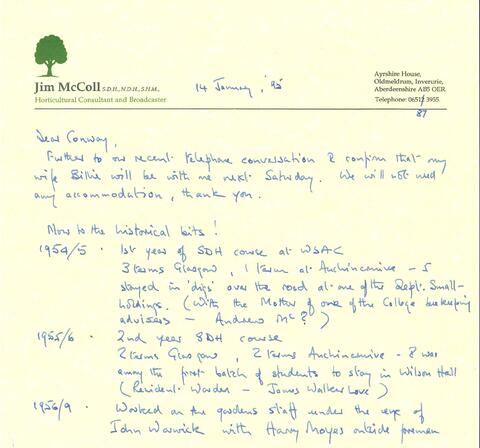 Jim McColl S.D.H., N.D.H., S.H.M.,
Horticultural Consultant and Broadcaster
14 January, '95
Ayrshire House,
Oldmeldrum, Inverurie,
Aberdeenshire AB5 OER
Telephone: 0651 3955
87
Dear Conway,
Further to our recent telephone conversation I confirm that my
wife Billie will be with me next Saturday. We will not need
any accommodation, thank you.
Now to the historical bits!
1954/5 - 1st year of SDH course at WSAC
3 terms Glasgow, 1 term at Auchincruive - I
stayed in 'digs' over the road at one of the Dept. Small-
holdings. (With the Mother of one of the College beekeeping
advisers - Andrew Mc?)
1955/6 - 2nd year SDH course
2 terms Glasgow, 2 terms Auchincruive - I was
among the first batch of students to stay in Wilson Hall
(Resident Warden - James Walker Love)
1956/9 - Worked on the gardens staff under the eye of
John Warwick with Harry Moyes outside foreman